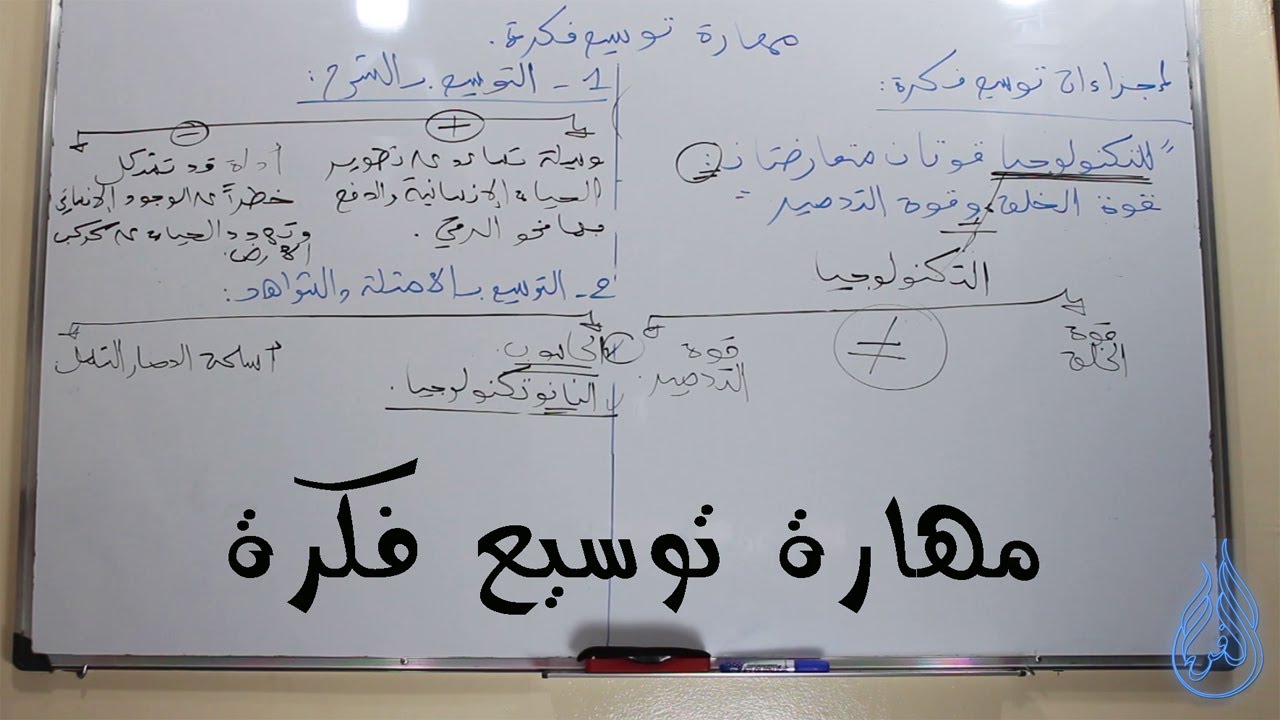 مهارة توسيع فكرة.
إجراءات توسيع فكرة:
"للتكنولوجيا قوتان متعارضتان:
قوة الخلق وقوة التدمير"
التكنولوجيا
قوة
الخلق
≠
قوة
التدمير.
1 - التوسيع بالشرح:
+
-
وسيلة تساعد على تطوير
الحياة الإنسانية والدفع
بها نحو الرقي.
أداة قد تشكل
خطراً على الوجود الإنساني
وتهدد الحياة على كوكب
الأرض.
2 - التوسيع بالأمثلة والشواهد:
الحاسوب.
النانوتكنولوجيا.
أسلحة الدمار الشامل
مهارة توسيع فكرة